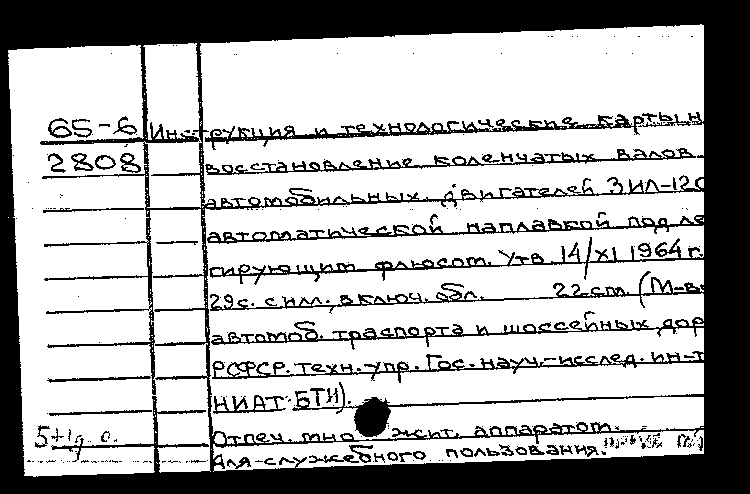 65-6 Инструкция и технологические карты н
2808 восстановление коленчатых валов
автомобильных двигателей ЗИЛ-120
автоматической наплавкой под ле
гирующим флюсом. Утв 14/XI 1964 г.
29с. с илл., включ. обл. 22 см (М-в
автомоб. траспорта и шоссейных дор
РСФСР. Техн. упр. Гос. науч.-исслед. ин-т
НИАТ. БТИ).
Отпеч. мно жит. аппаратом.
Для служебного пользования.